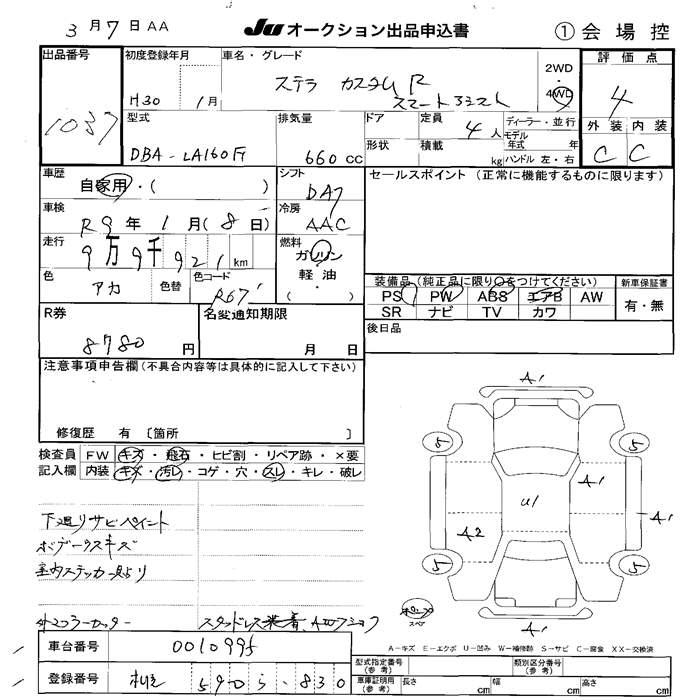 3 月 7 日 AA
JU オークション出品申込書
① 会 場 控
出品番号
1037
初度登録年月
H30 1月
車名・グレード
ステラ カスタム R
スマートアシスト
2WD
・
4WD
評 価 点
4
型式
DBA - LA160F
排気量
660 CC
ドア
定員
4 人
ディーラー・並行
モデル
年式 年
形状
積載
kg
ハンドル 左・右
外 装 内 装
C C
車歴
自家用・( )
シフト
DA7
セールスポイント (正常に機能するものに限ります)
車検
R9 年 1 月 (8 日)
冷房
AAC
走行
9万9千921 km
燃料
ガソリン
軽・油
( ・ )
色
アカ
色替
色コード
R67
装備品 (純正品に限り○をつけてください)
新車保証書
PS PW ABS エアB AW
SR ナビ TV カワ
有・無
R券
8780 円
名変通知期限
月 日
後日品
注意事項申告欄 (不具合内容等は具体的に記入して下さい)
修復歴 有 〔箇所 〕
検査員
記入欄
FW キズ・飛石・ヒビ割・リペア跡・×要
内装 キズ・汚レ・コゲ・穴・スレ・キレ・破レ
下廻りサビペイント
ボデーウスキズ
室内ステッカー
ミラーカッター
スタッドレス装着
A1
5 5
A1
U1
A1
A2
5 5
A1
スペア
A－キズ E－エクボ U－凹み W－補修跡 S－サビ C－腐食 XX－交換済
車台番号
0010995
登録番号
590 830
型式指定番号
(参 考)
類別区分番号
(参 考)
車庫証明用
(参 考)
長さ cm
幅 cm
高さ cm